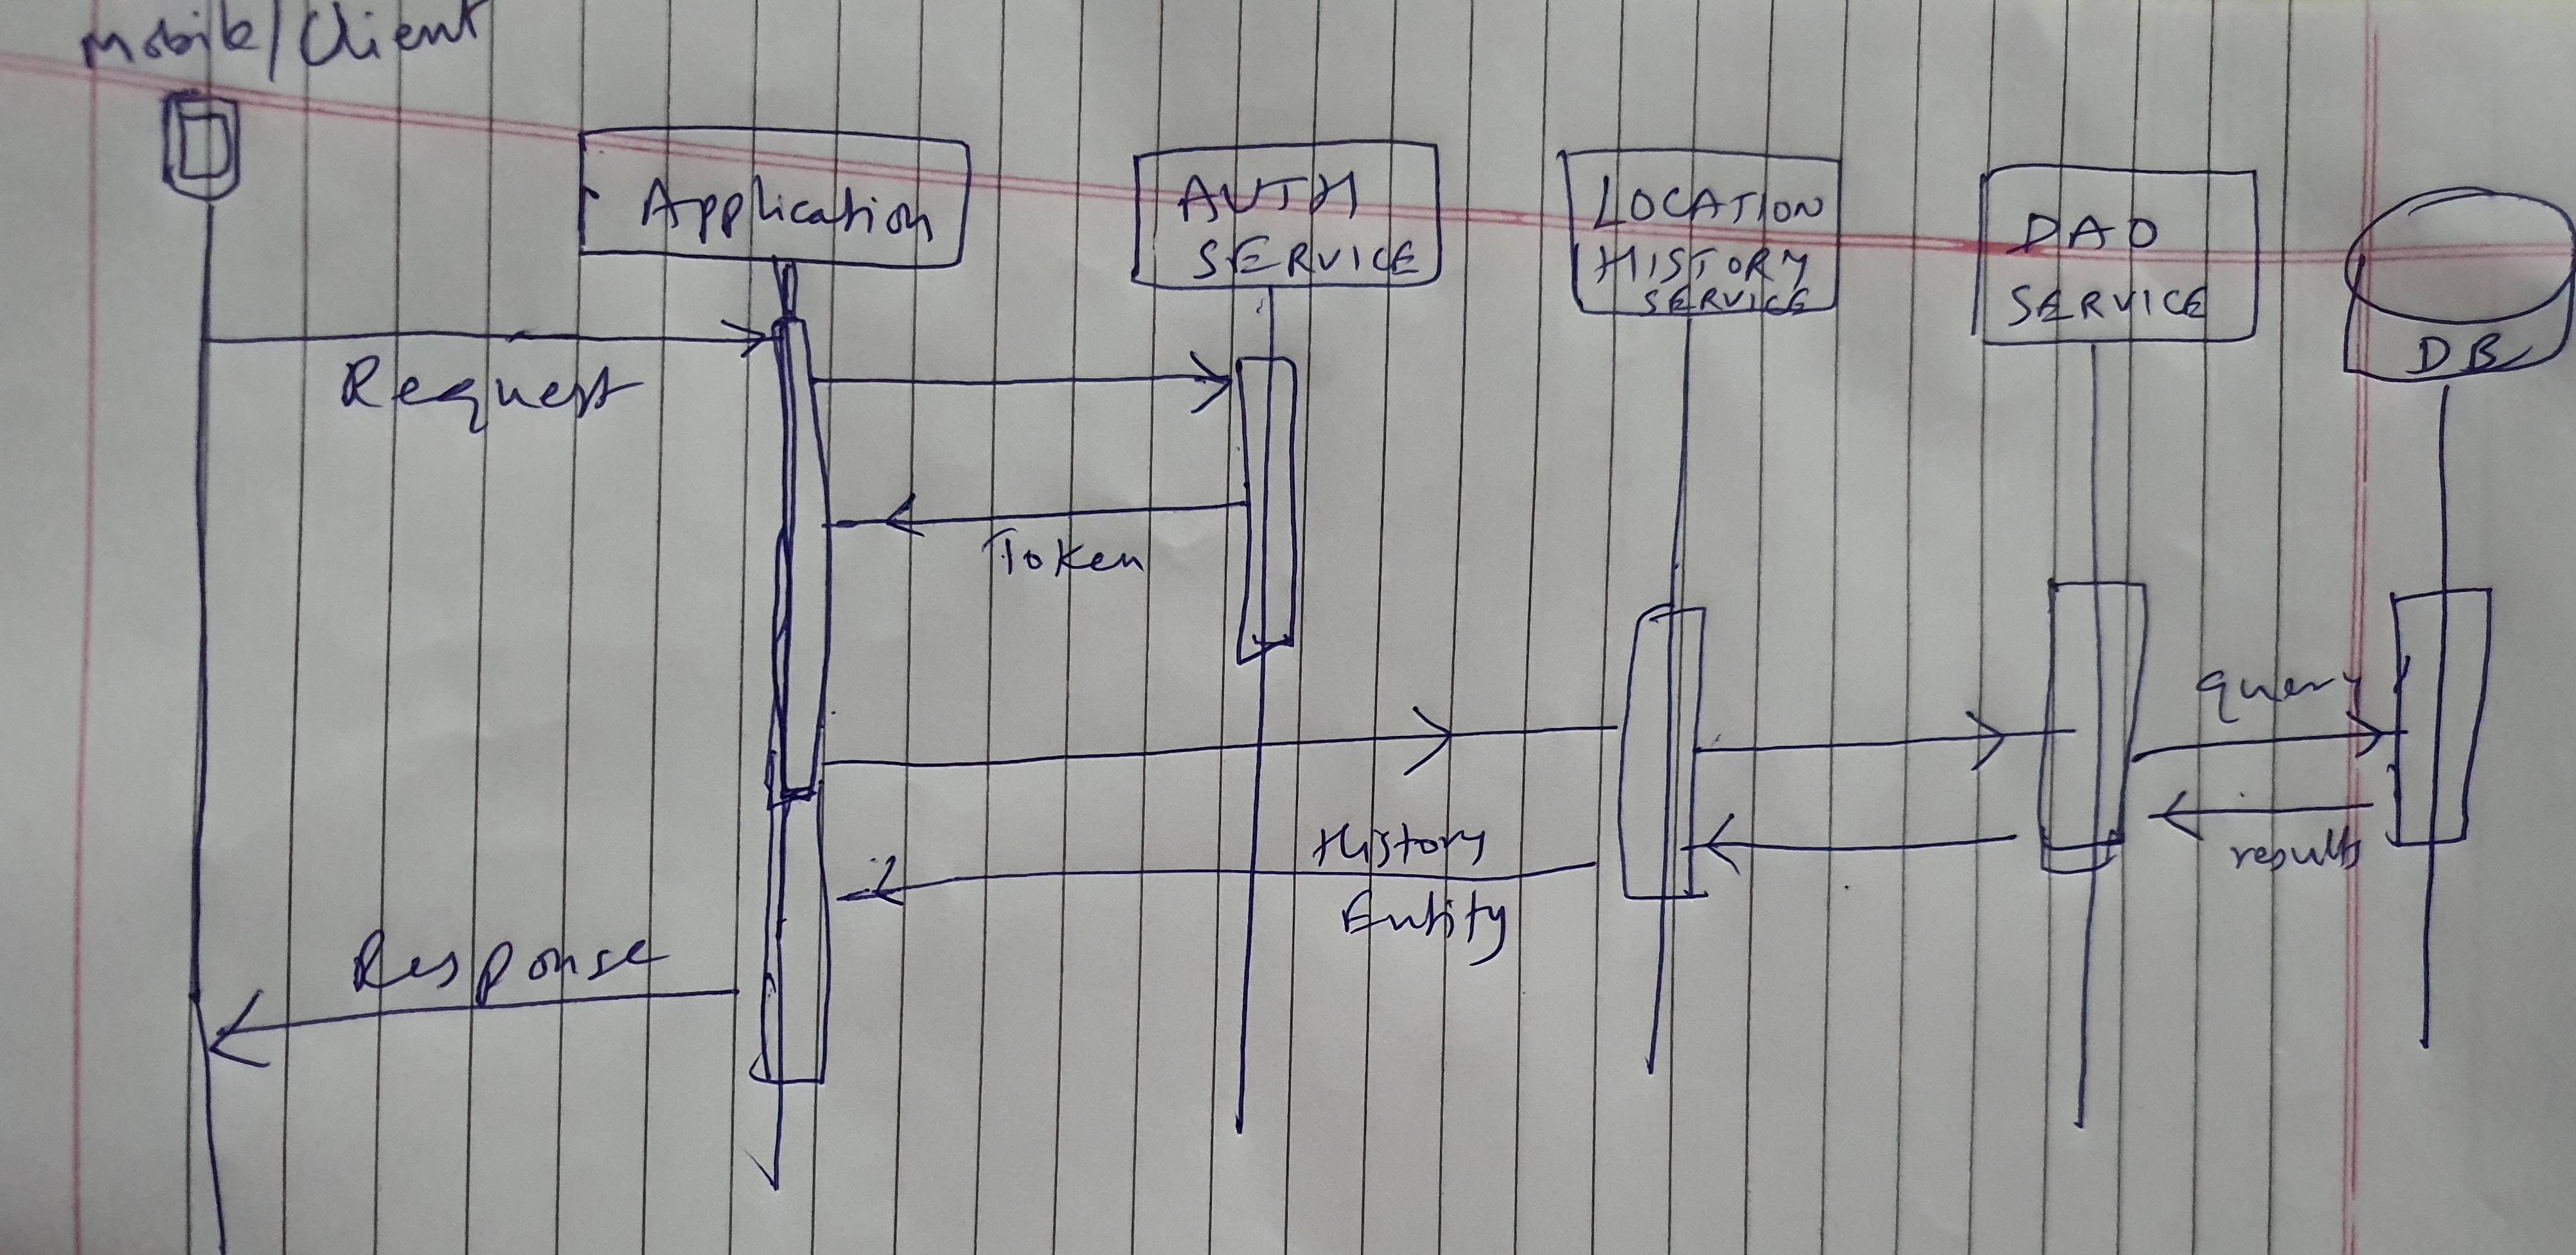 Mobile/Client
Application
AUTH
SERVICE
LOCATION
HISTORY
SERVICE
DAO
SERVICE
DB
Request
Token
query
results
History
Entity
Response